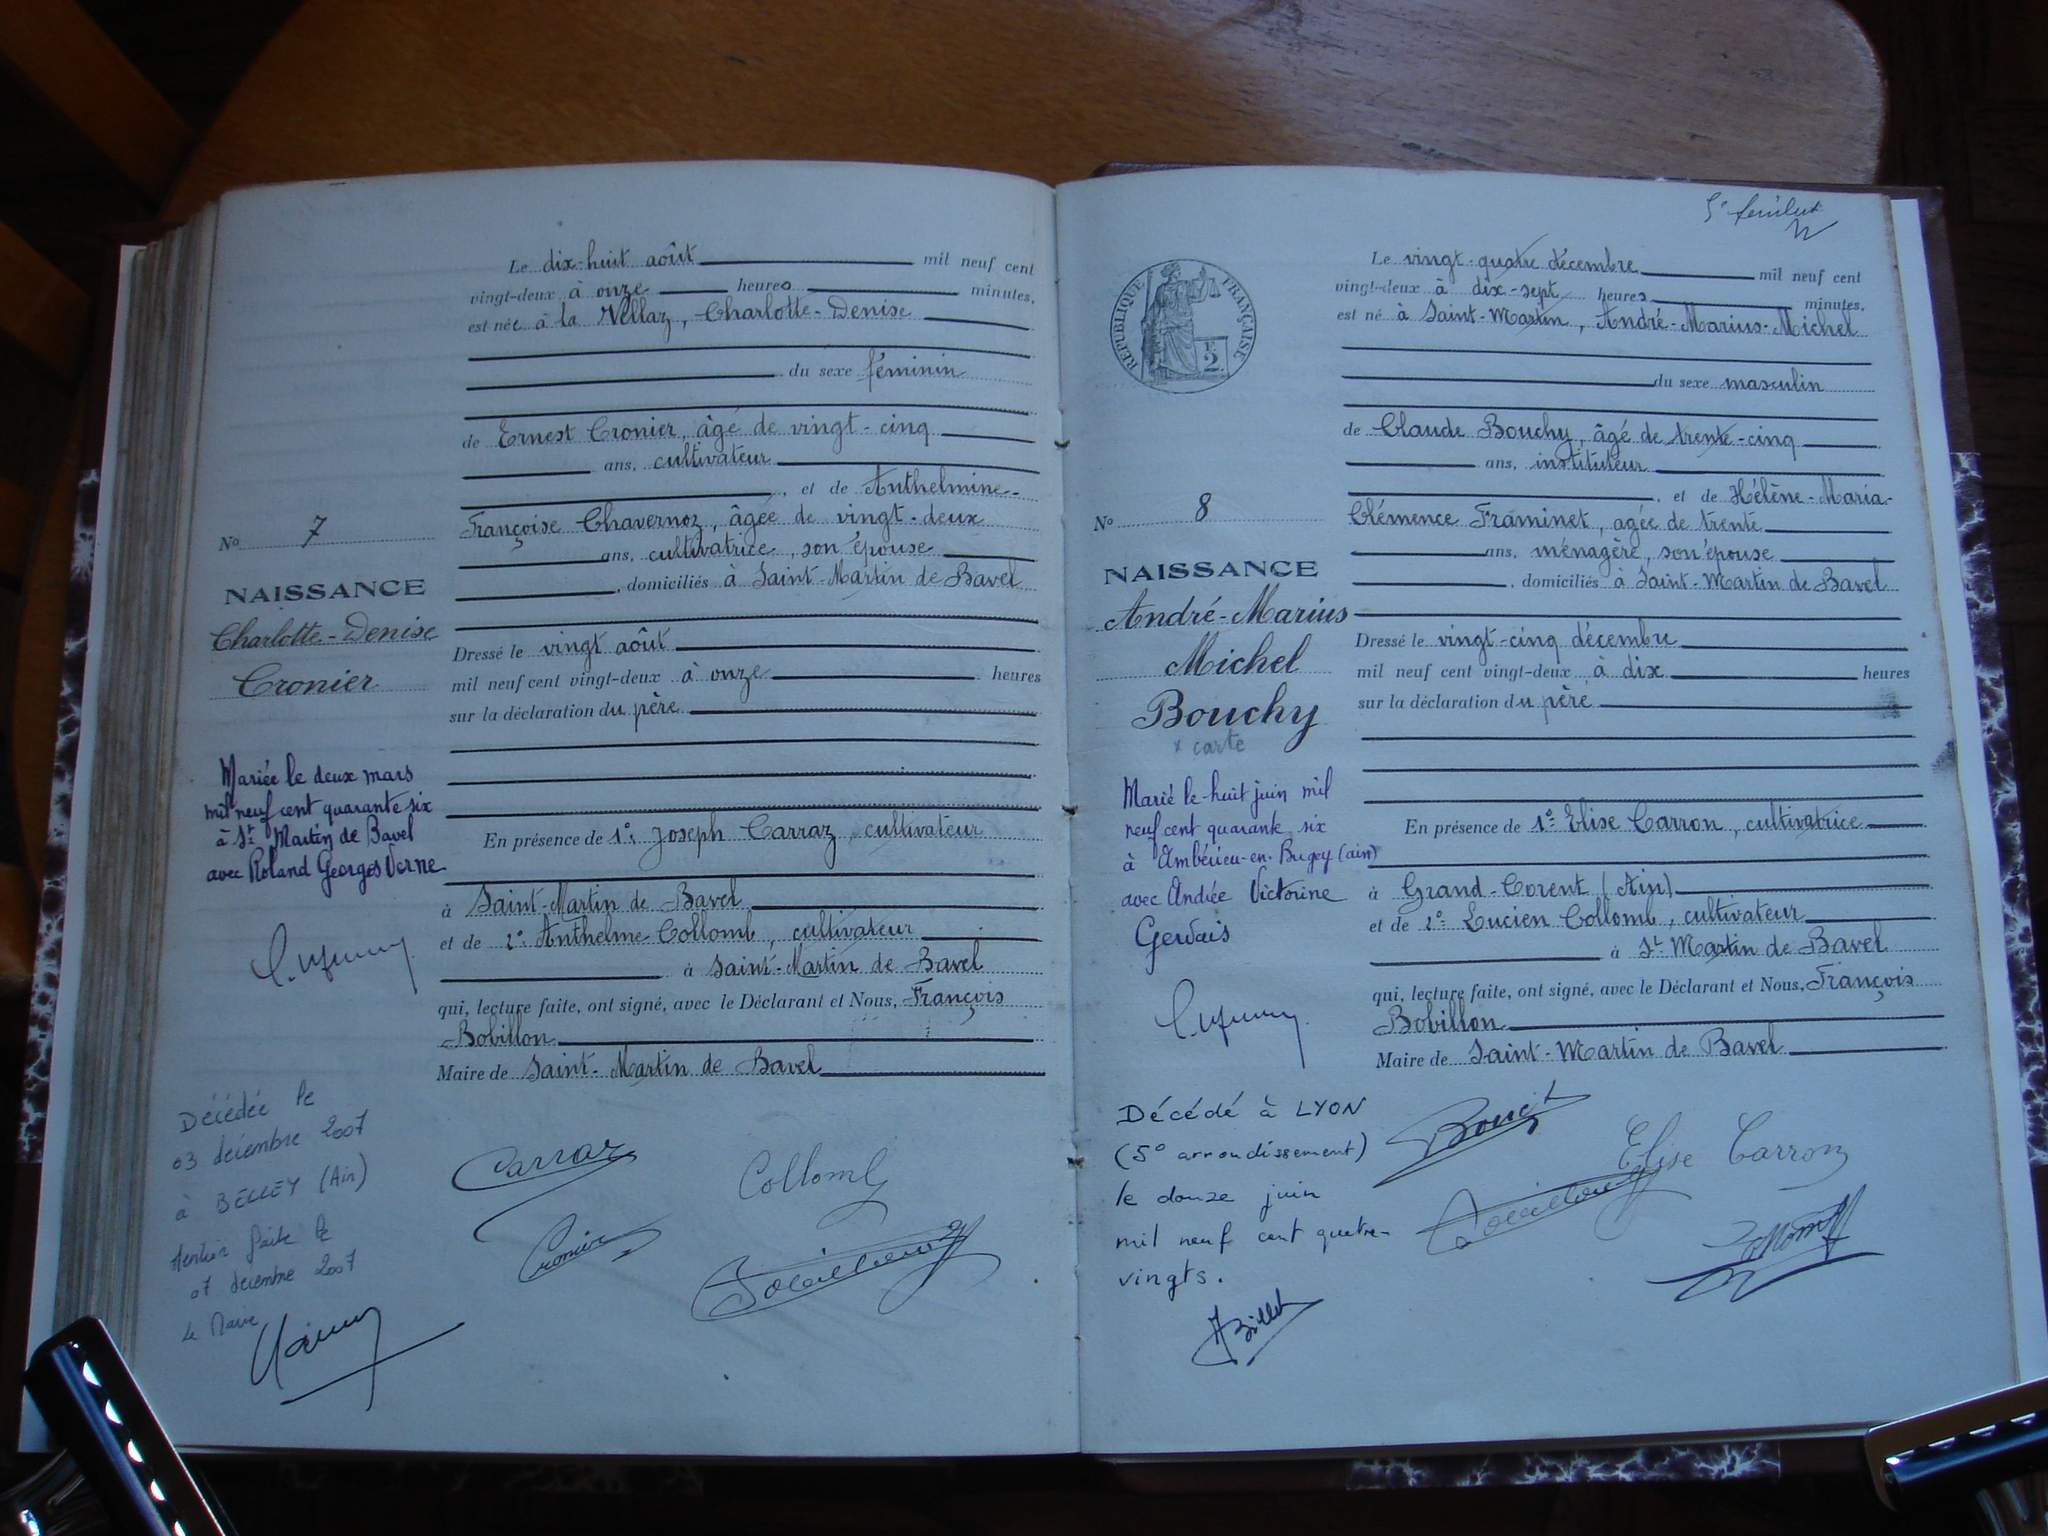 Le dix-huit août mil neuf cent
vingt-deux à onze heures minutes,
est née à la Vellaz, Charlotte-Denise
du sexe féminin
de Ernest Cronier, âgé de vingt-cinq
ans, cultivateur
, et de Anthelmine-
Françoise Chavernoz, âgée de vingt-deux
ans, cultivatrice, son épouse
, domiciliés à Saint-Martin de Bavel
No 7
NAISSANCE
Charlotte-Denise
Cronier
Dressé le vingt août
mil neuf cent vingt-deux à onze heures
sur la déclaration du père
Mariée le deux mars
mil neuf cent quarante six
à St Martin de Bavel
avec Roland Georges Verne
En présence de 1o: Joseph Carraz, cultivateur
à Saint-Martin de Bavel
et de 2o: Anthelme Collomb, cultivateur
à Saint-Martin de Bavel
qui, lecture faite, ont signé, avec le Déclarant et Nous, François
Bobillon
Maire de Saint-Martin de Bavel
Décédée le
03 décembre 2007
à BELLEY (Ain)
Mention faite le
07 décembre 2007
Le Maire
Carraz
Collomb
Cronier
RÉPUBLIQUE FRANÇAISE
2
Le vingt-quatre décembre mil neuf cent
vingt-deux à dix-sept heures minutes,
est né à Saint-Martin, André-Marius-Michel
du sexe masculin
de Claude Bouchy, âgé de trente-cinq
ans, instituteur
, et de Hélène-Maria-
Clémence Framinet, agée de trente
ans, ménagère, son épouse
, domiciliés à Saint-Martin de Bavel
No 8
NAISSANCE
André-Marius
Michel
Bouchy
x carte
Dressé le vingt-cinq décembre
mil neuf cent vingt-deux à dix heures
sur la déclaration du père
Marié le huit juin mil
neuf cent quarante six
à Ambérieu-en-Bugey (ain)
avec Andrée Victorine
Gervais
En présence de 1o: Elise Carron, cultivatrice
à Grand-Corent (Ain)
et de 2o: Lucien Collomb, cultivateur
à St Martin de Bavel
qui, lecture faite, ont signé, avec le Déclarant et Nous, François
Bobillon
Maire de Saint-Martin de Bavel
Décédé à LYON
(5o arrondissement)
le douze juin
mil neuf cent quatre-
vingts.
Elise Carron